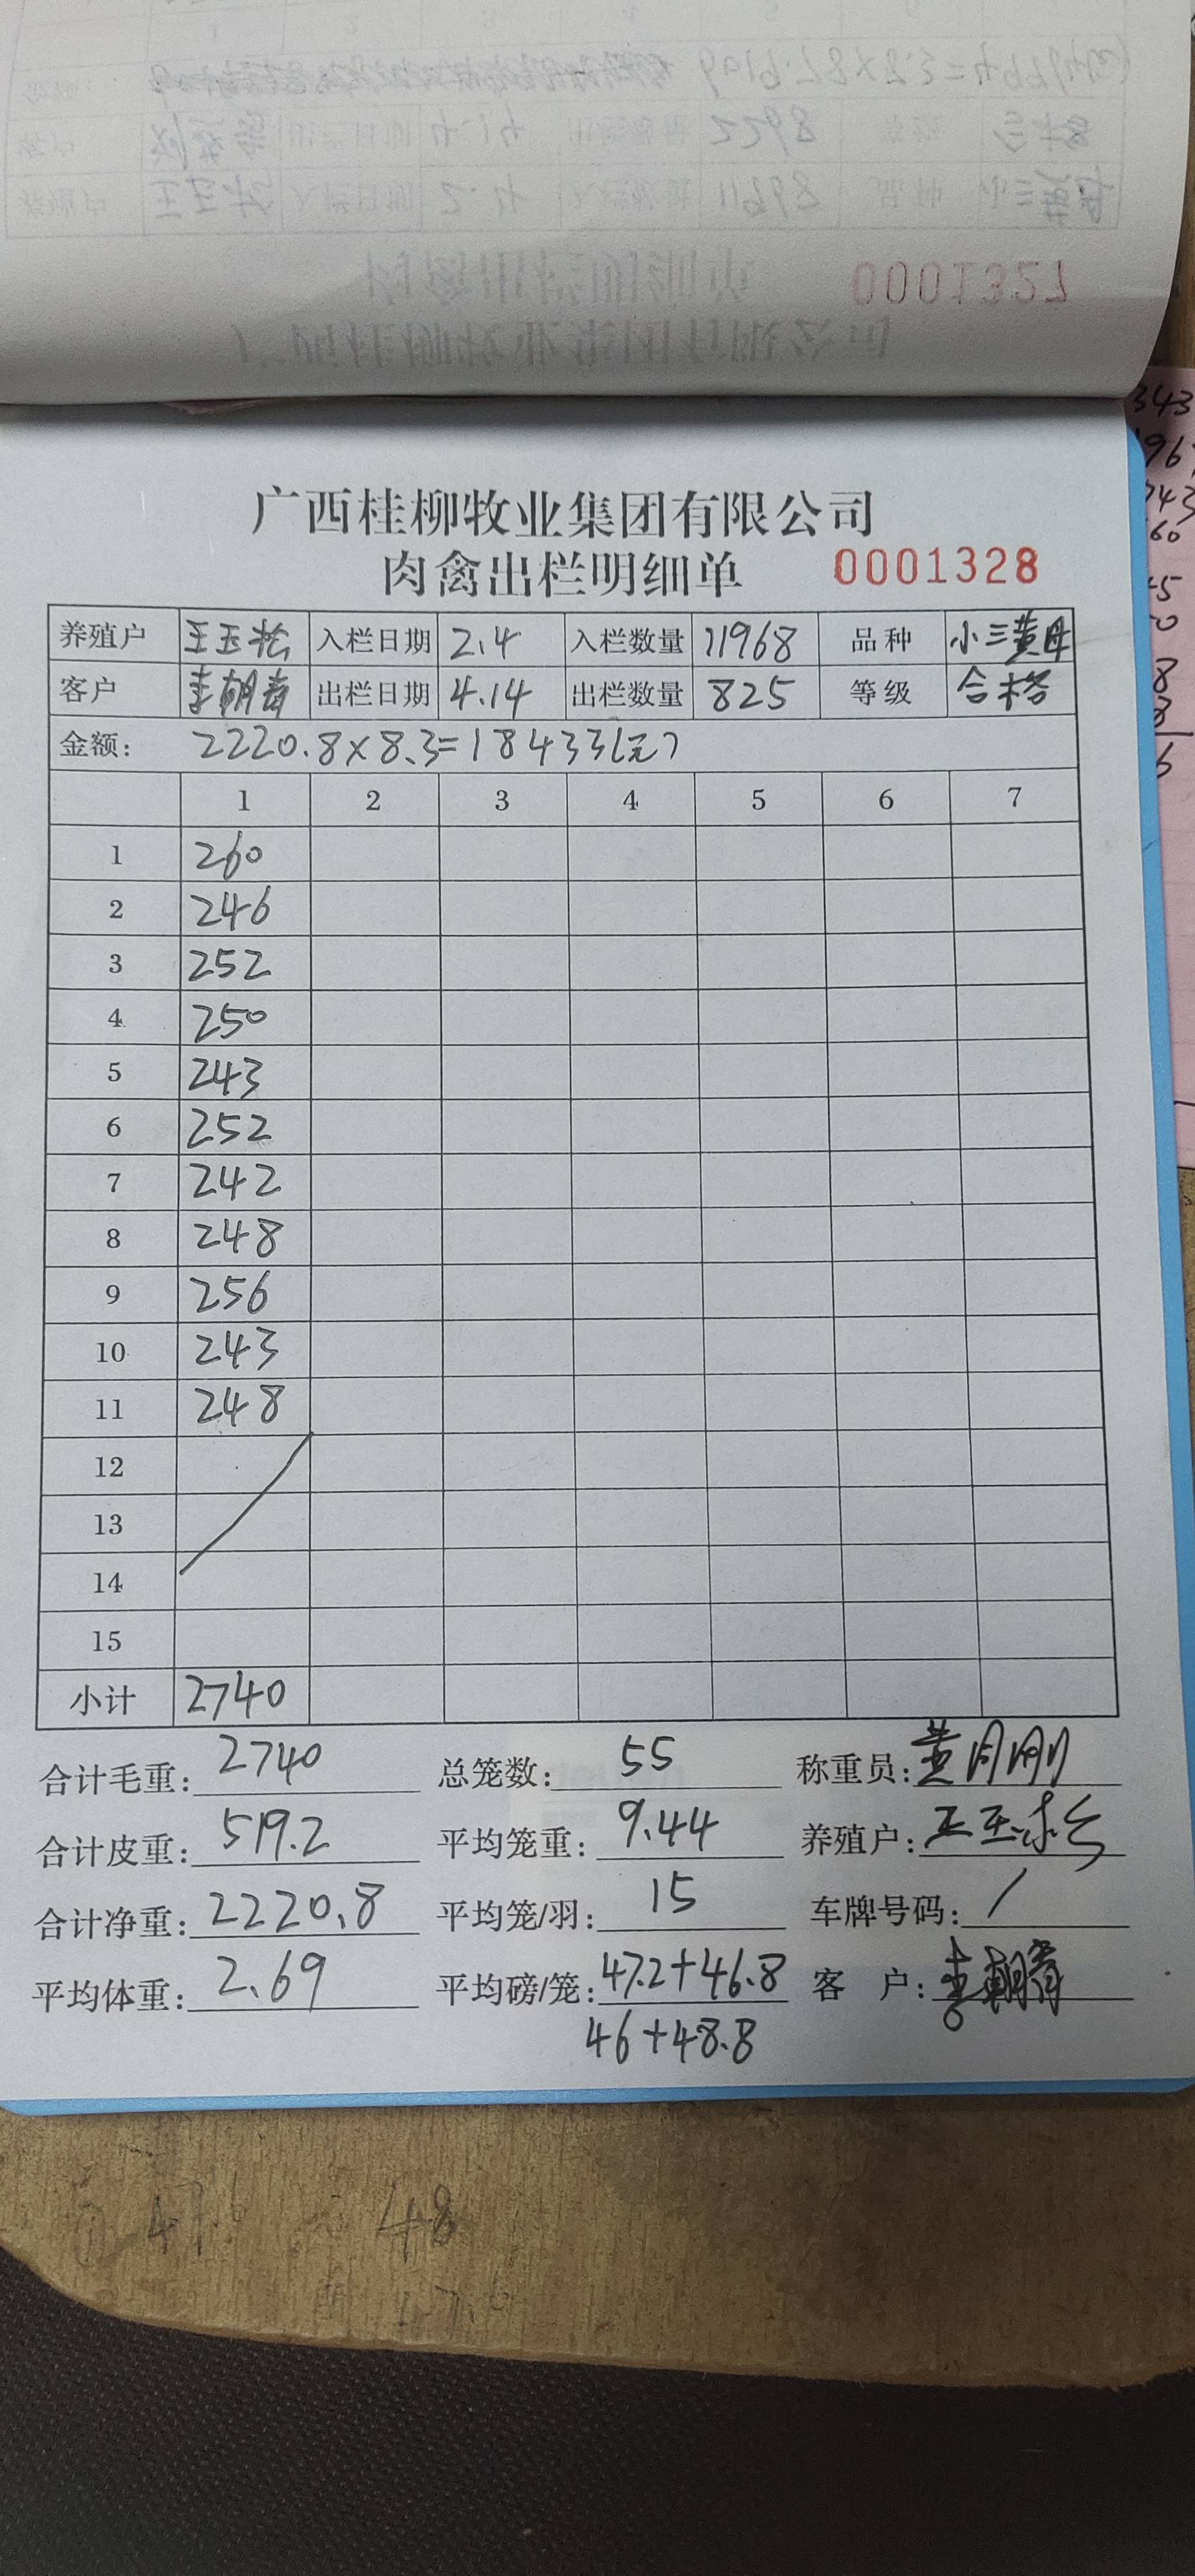 0001327
广西桂柳牧业集团有限公司
肉禽出栏明细单 0001328
养殖户 王玉松 入栏日期 2.4 入栏数量 11968 品种 小三黄母
客户 李朝青 出栏日期 4.14 出栏数量 825 等级 合格
金额: 2220.8×8.3=18433(元)
1 2 3 4 5 6 7
1 260
2 246
3 252
4 250
5 243
6 252
7 242
8 248
9 256
10 243
11 248
12
13
14
15
小计 2740
合计毛重: 2740 总笼数: 55 称重员: 黄月刚
合计皮重: 519.2 平均笼重: 9.44 养殖户: 王玉松
合计净重: 2220.8 平均笼/羽: 15 车牌号码: /
平均体重: 2.69 平均磅/笼: 47.2+46.8 客户: 李朝青
46+48.8
48